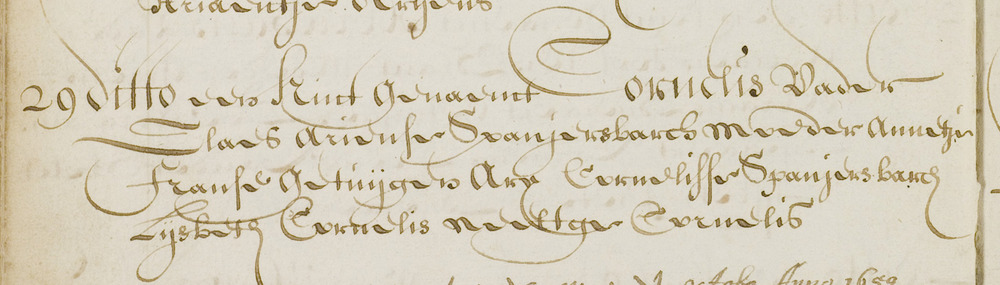 Ariaentje Ariens
29 ditto een Kint Genaemt Cornelis Vader
Claes Ariense Spanjersbarch Moeder Annetje
Franse Getuijgen Ary Cornelisse Spanjersbarch
Lijsbeth Cornelis Neeltge Cornelis
octob Anno 1659